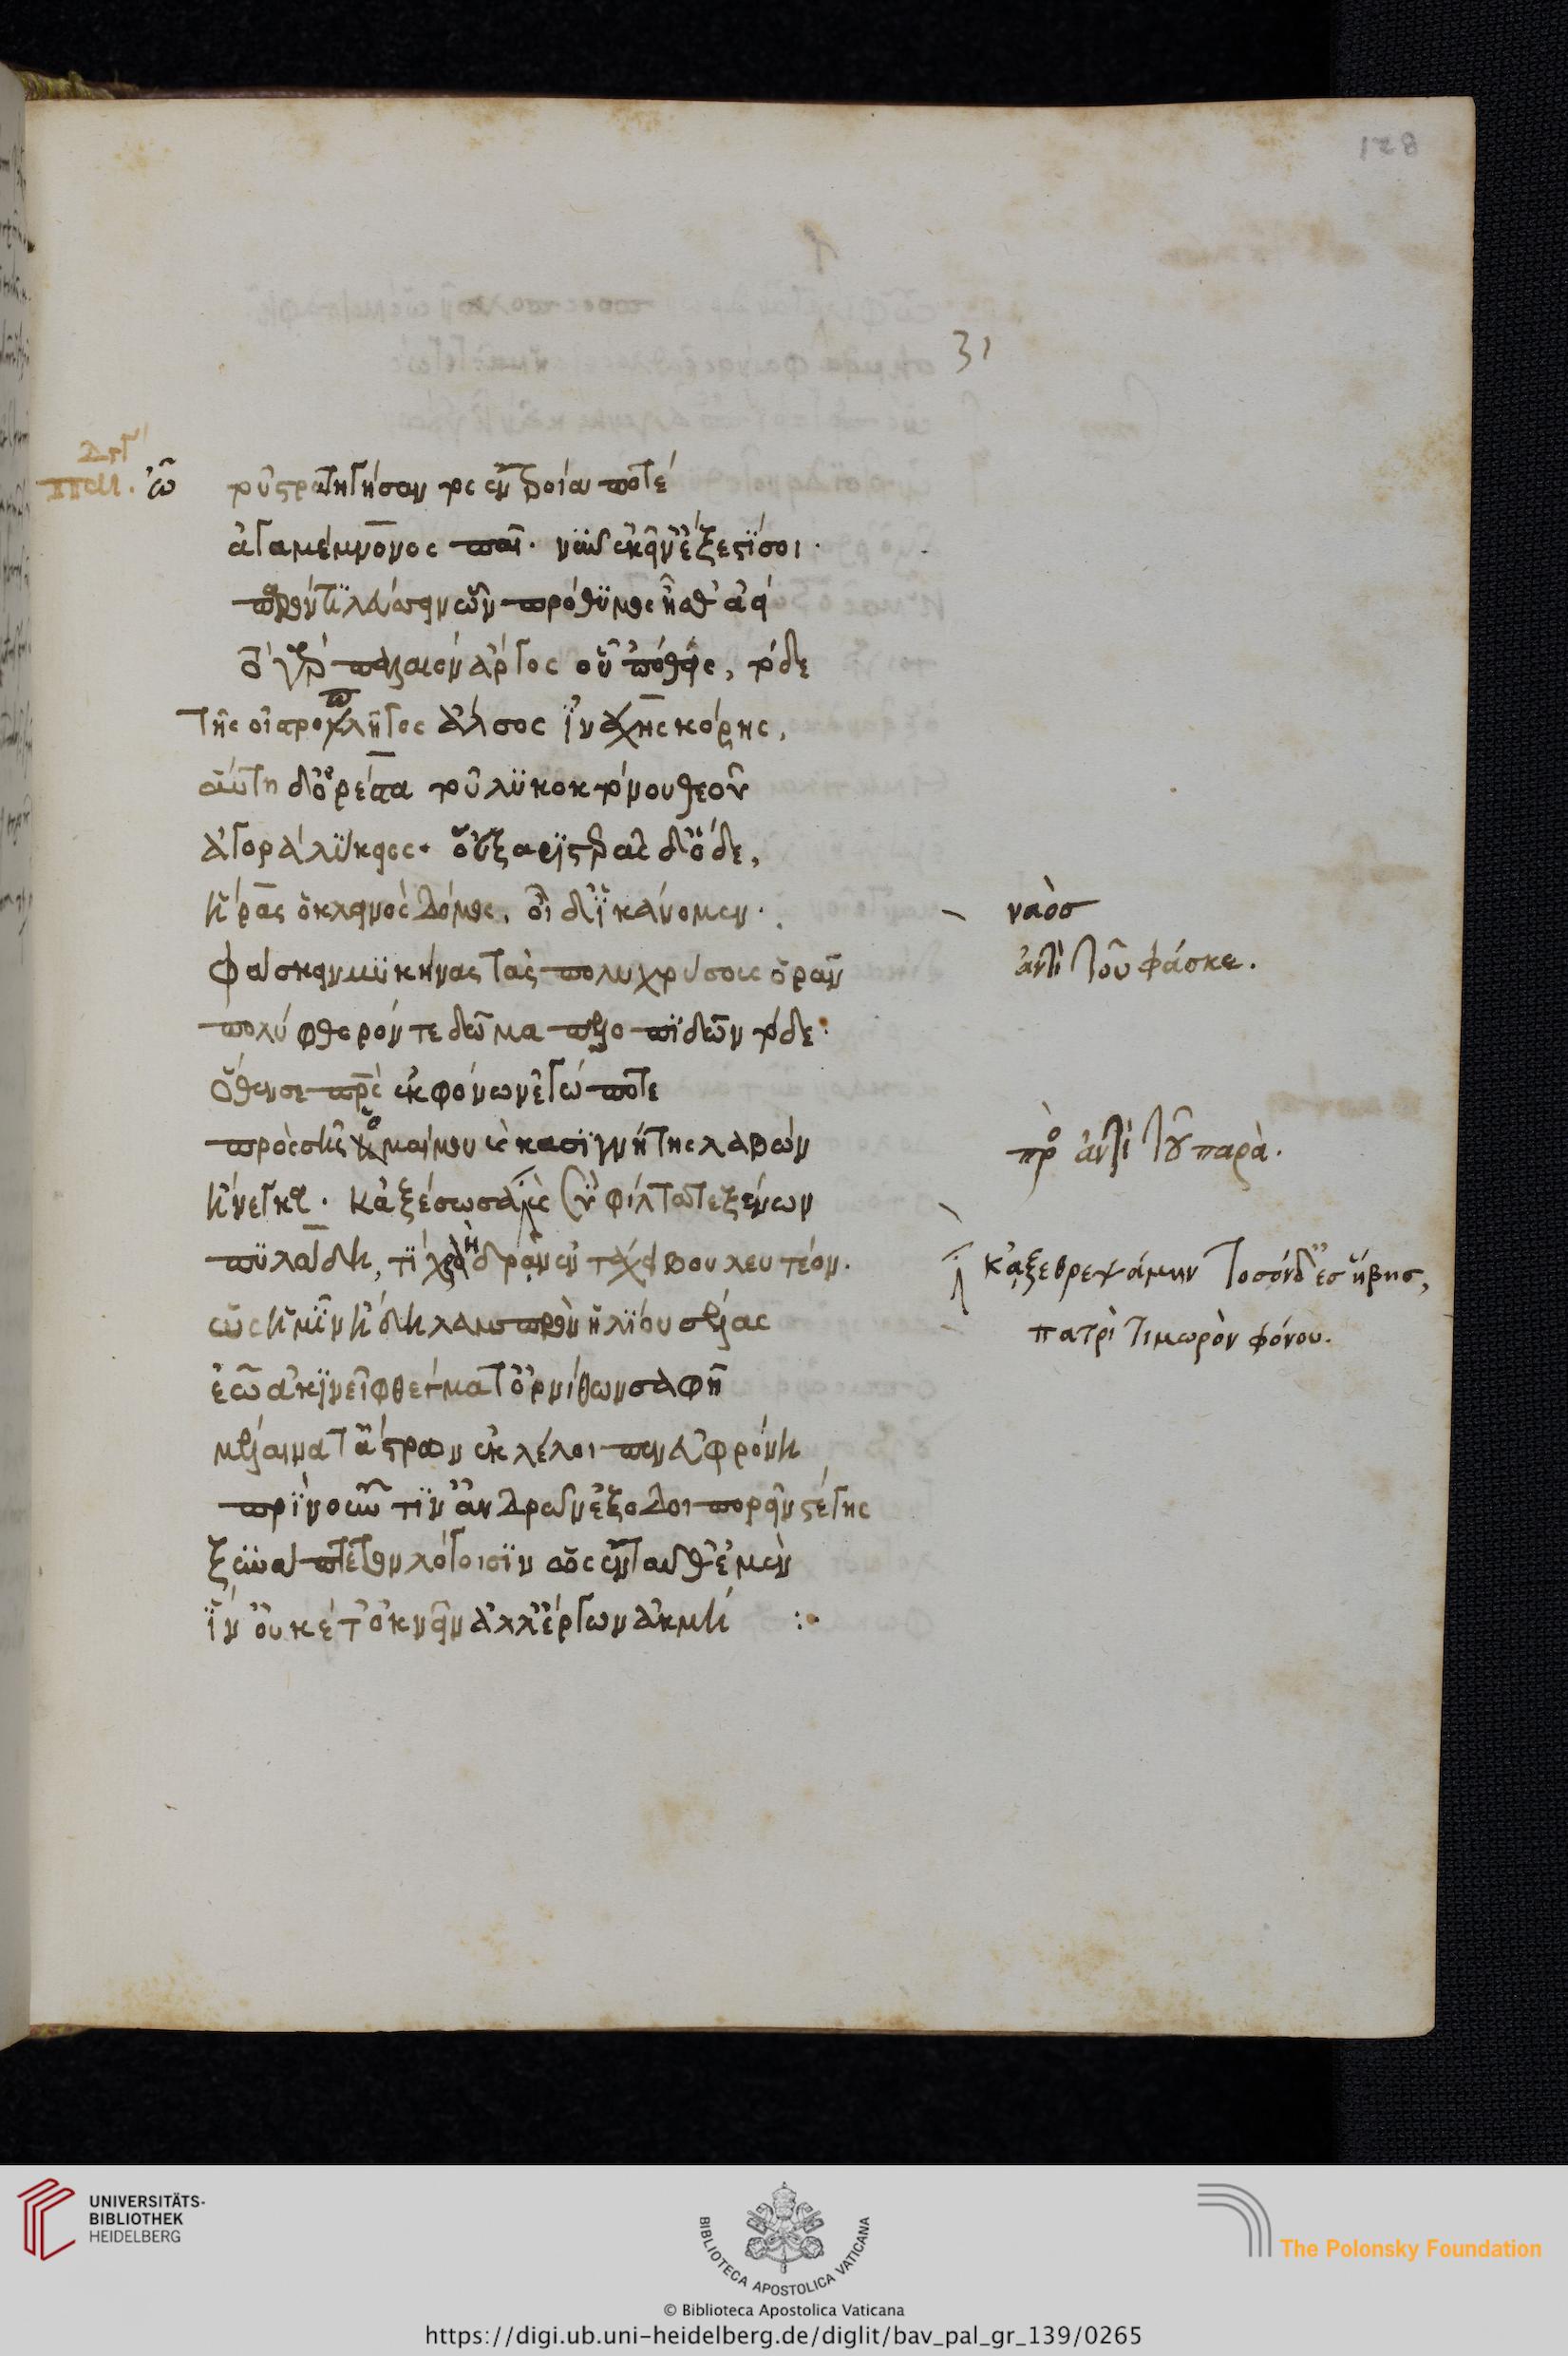 128
31
ὦ τοῦ στρατηγήσαντος ἐν τροία ποτέ
ἀγαμέμνονος παῖ· νῦν ἐκεῖν ἔξεστί σοι·
παρόντι λεύσσειν ὧν πρόθυμος ἦσθ' ἀεί
τὸ γὰρ παλαιὸν ἄργος οὑπόθεις, τόδε
τῆς οἰστροπλῆγος ἄλσος ἰνάχου κόρης,
αὕτη δ' ὀρέστα τοῦ λυκοκτόνου θεοῦ
ἀγορὰ λύκειος· οὑξ ἀριστερᾶς δ' ὅδε,
ἥρας ὁ κλεινὸς δόμος, οἷ δ' ἱκάνομεν·
φάσκειν μυκήνας τὰς πολυχρύσους ὁρᾶν
πολύφθορόν τε δῶμα πελοπιδῶν τόδε·
ὅθεν σε πατρὸς ἐκ φόνων ἐγώ ποτε
πρὸς σῆς ὁμαίμου καὶ κασιγνήτης λαβὼν
ἤνεγκα· κἀξέσωσα καὶ νῦν φίλτατε ξένων
πυλάδη, τί χρὴ δρᾶν ἐν τάχει βουλευτέον.
ὡς ἡμὶν ἤδη λαμπρὸν ἡλίου σέλας
ἑῶα κινεῖ φθέγματ' ὀρνίθων σαφῆ
μέλαινά τ' ἄστρων ἐκλέλοιπεν εὐφρόνη
πρὶν οὖν τιν' ἀνδρῶν ἐξοδοιπορεῖν στέγης
ξυνάπτετον λόγοισιν ὡς ἐνταῦθ' ἐμὲν
ἵν' οὐκέτ' ὀκνεῖν ἀλλ' ἔργων ἀκμή :·
ναὸσ
ἀντὶ τοῦ φάσκε.
πρὸ ἀντὶ τοῦ παρὰ.
κἀξεθρεψάμην τοσόνδ' ἐσ ἥβησ,
πατρὶ τιμωρὸν φόνου.
UNIVERSITÄTS-
BIBLIOTHEK
HEIDELBERG
BIBLIOTECA APOSTOLICA VATICANA
The Polonsky Foundation
© Biblioteca Apostolica Vaticana
https://digi.ub.uni-heidelberg.de/diglit/bav_pal_gr_139/0265